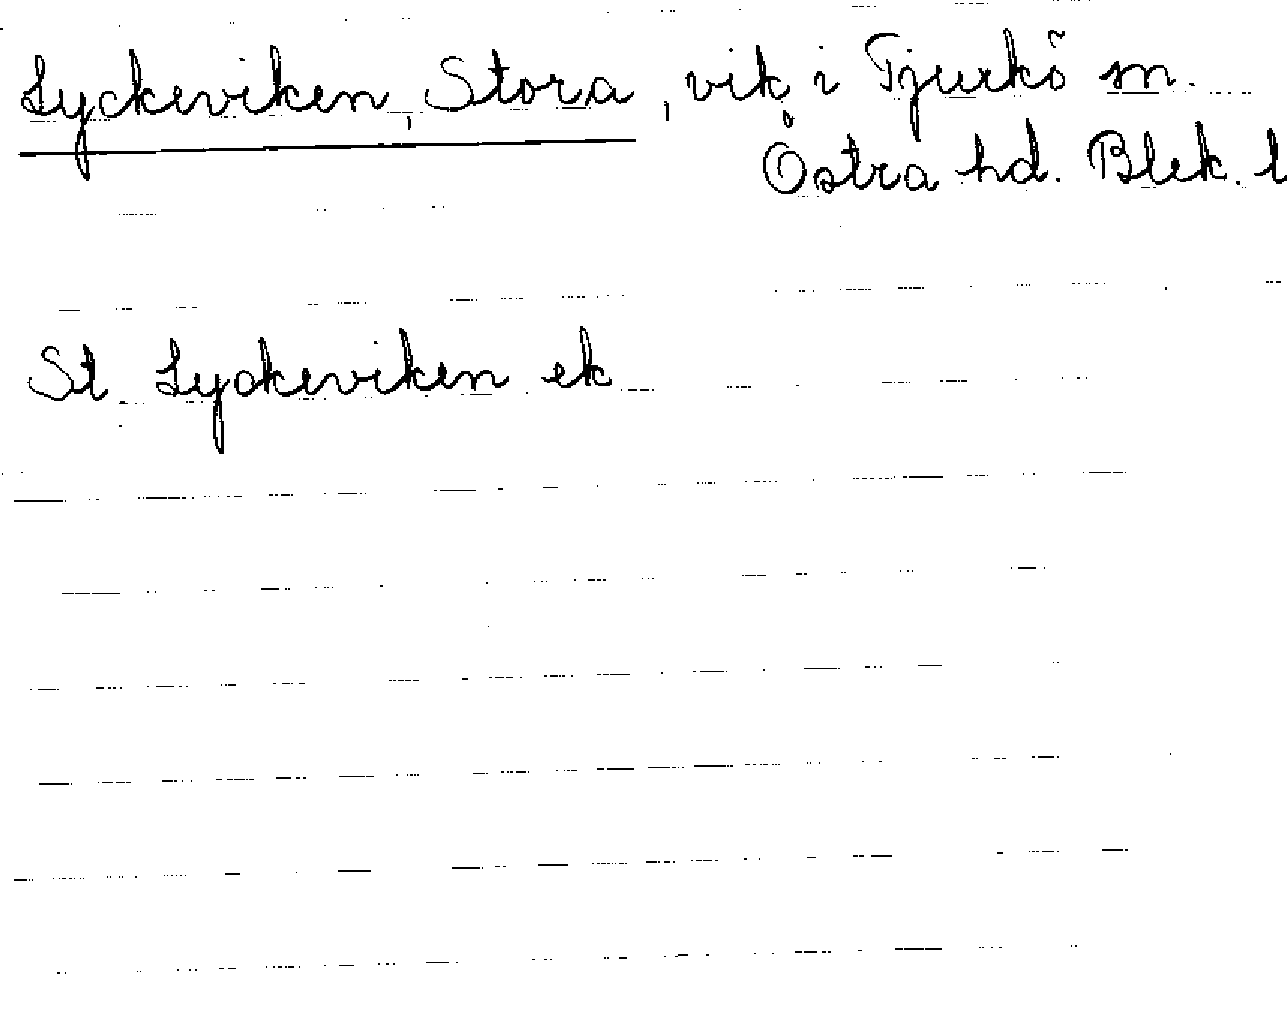 Lyckeviken, Stora, vik i Tjurkö sn.
Östra hd. Blek. l
St. Lyckeviken ek